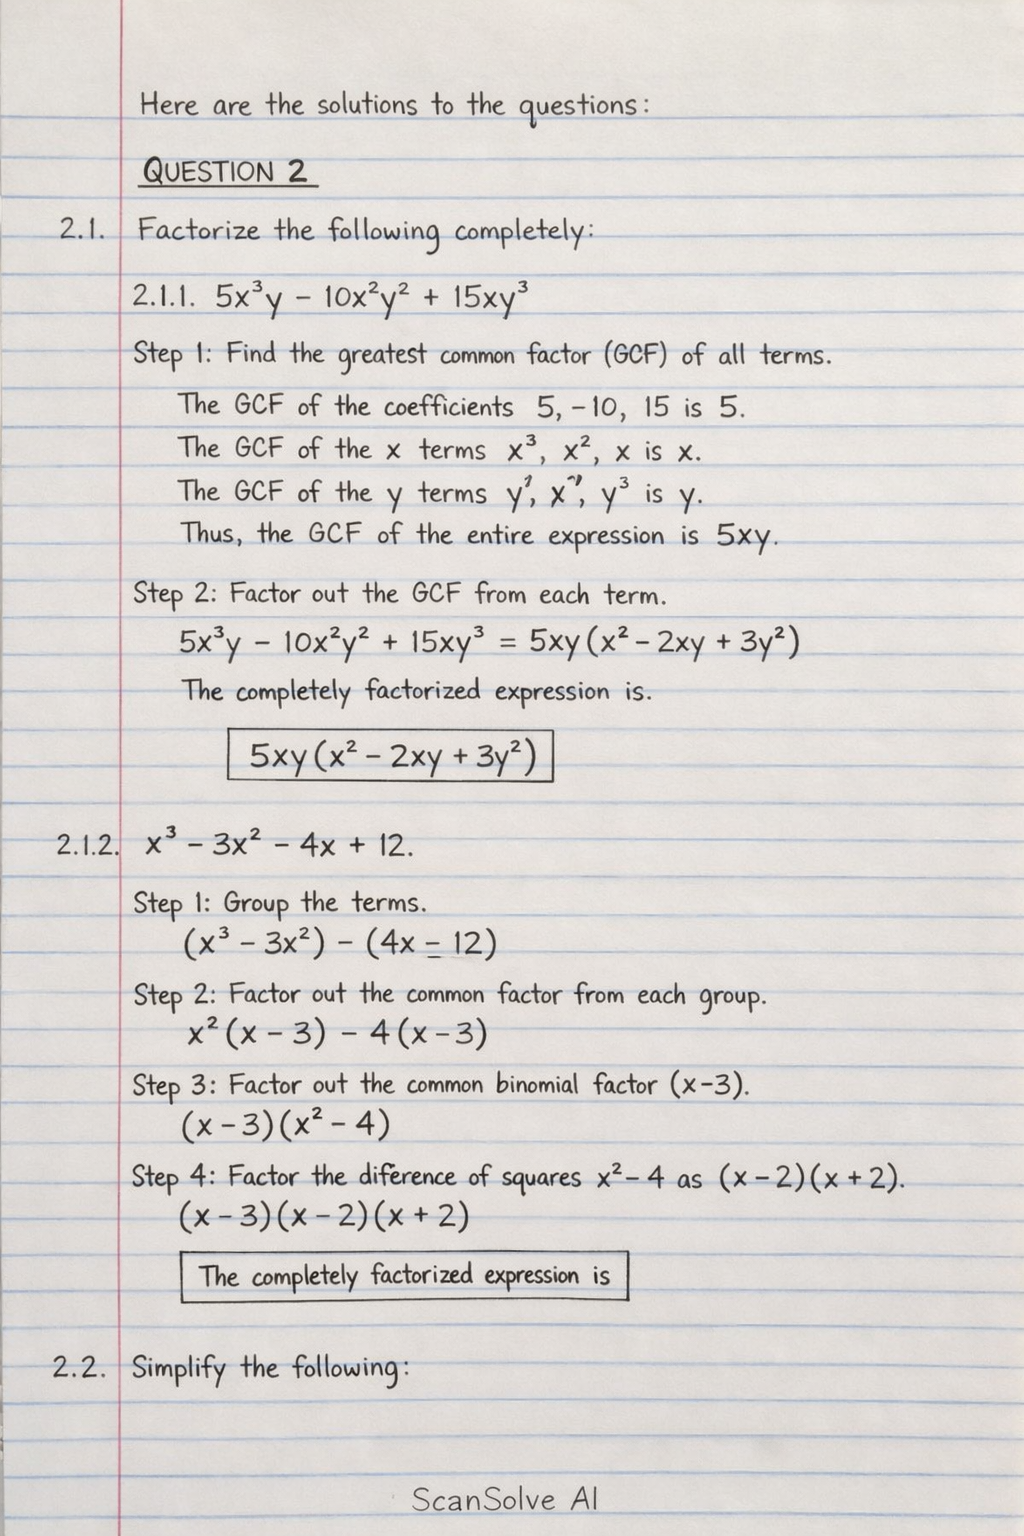 Here are the solutions to the questions:
QUESTION 2
2.1. Factorize the following completely:
2.1.1. 5x³y − 10x²y² + 15xy³
Step 1: Find the greatest common factor (GCF) of all terms.
The GCF of the coefficients 5, −10, 15 is 5.
The GCF of the x terms x³, x², x is x.
The GCF of the y terms y, x, y³ is y.
Thus, the GCF of the entire expression is 5xy.
Step 2: Factor out the GCF from each term.
5x³y − 10x²y² + 15xy³ = 5xy(x² − 2xy + 3y²)
The completely factorized expression is.
5xy(x² − 2xy + 3y²)
2.1.2. x³ − 3x² − 4x + 12.
Step 1: Group the terms.
(x³ − 3x²) − (4x − 12)
Step 2: Factor out the common factor from each group.
x²(x − 3) − 4(x − 3)
Step 3: Factor out the common binomial factor (x−3).
(x − 3)(x² − 4)
Step 4: Factor the diference of squares x² − 4 as (x − 2)(x + 2).
(x − 3)(x − 2)(x + 2)
The completely factorized expression is
2.2. Simplify the following:
ScanSolve AI